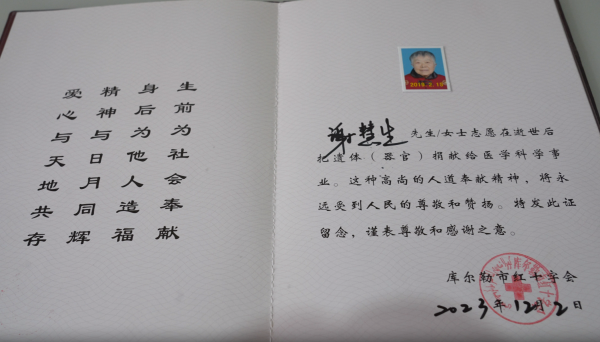 生前为社会奉献
身后为他人造福
精神与日月同辉
爱心与天地共存
谢慧生先生/女士志愿在逝世后
把遗体（器官）捐献给医学科学事
业。这种高尚的人道奉献精神，将永
远受到人民的尊敬和赞扬。特发此证
留念，谨表尊敬和感谢之意。
库尔勒市红十字会
2023年12月2日